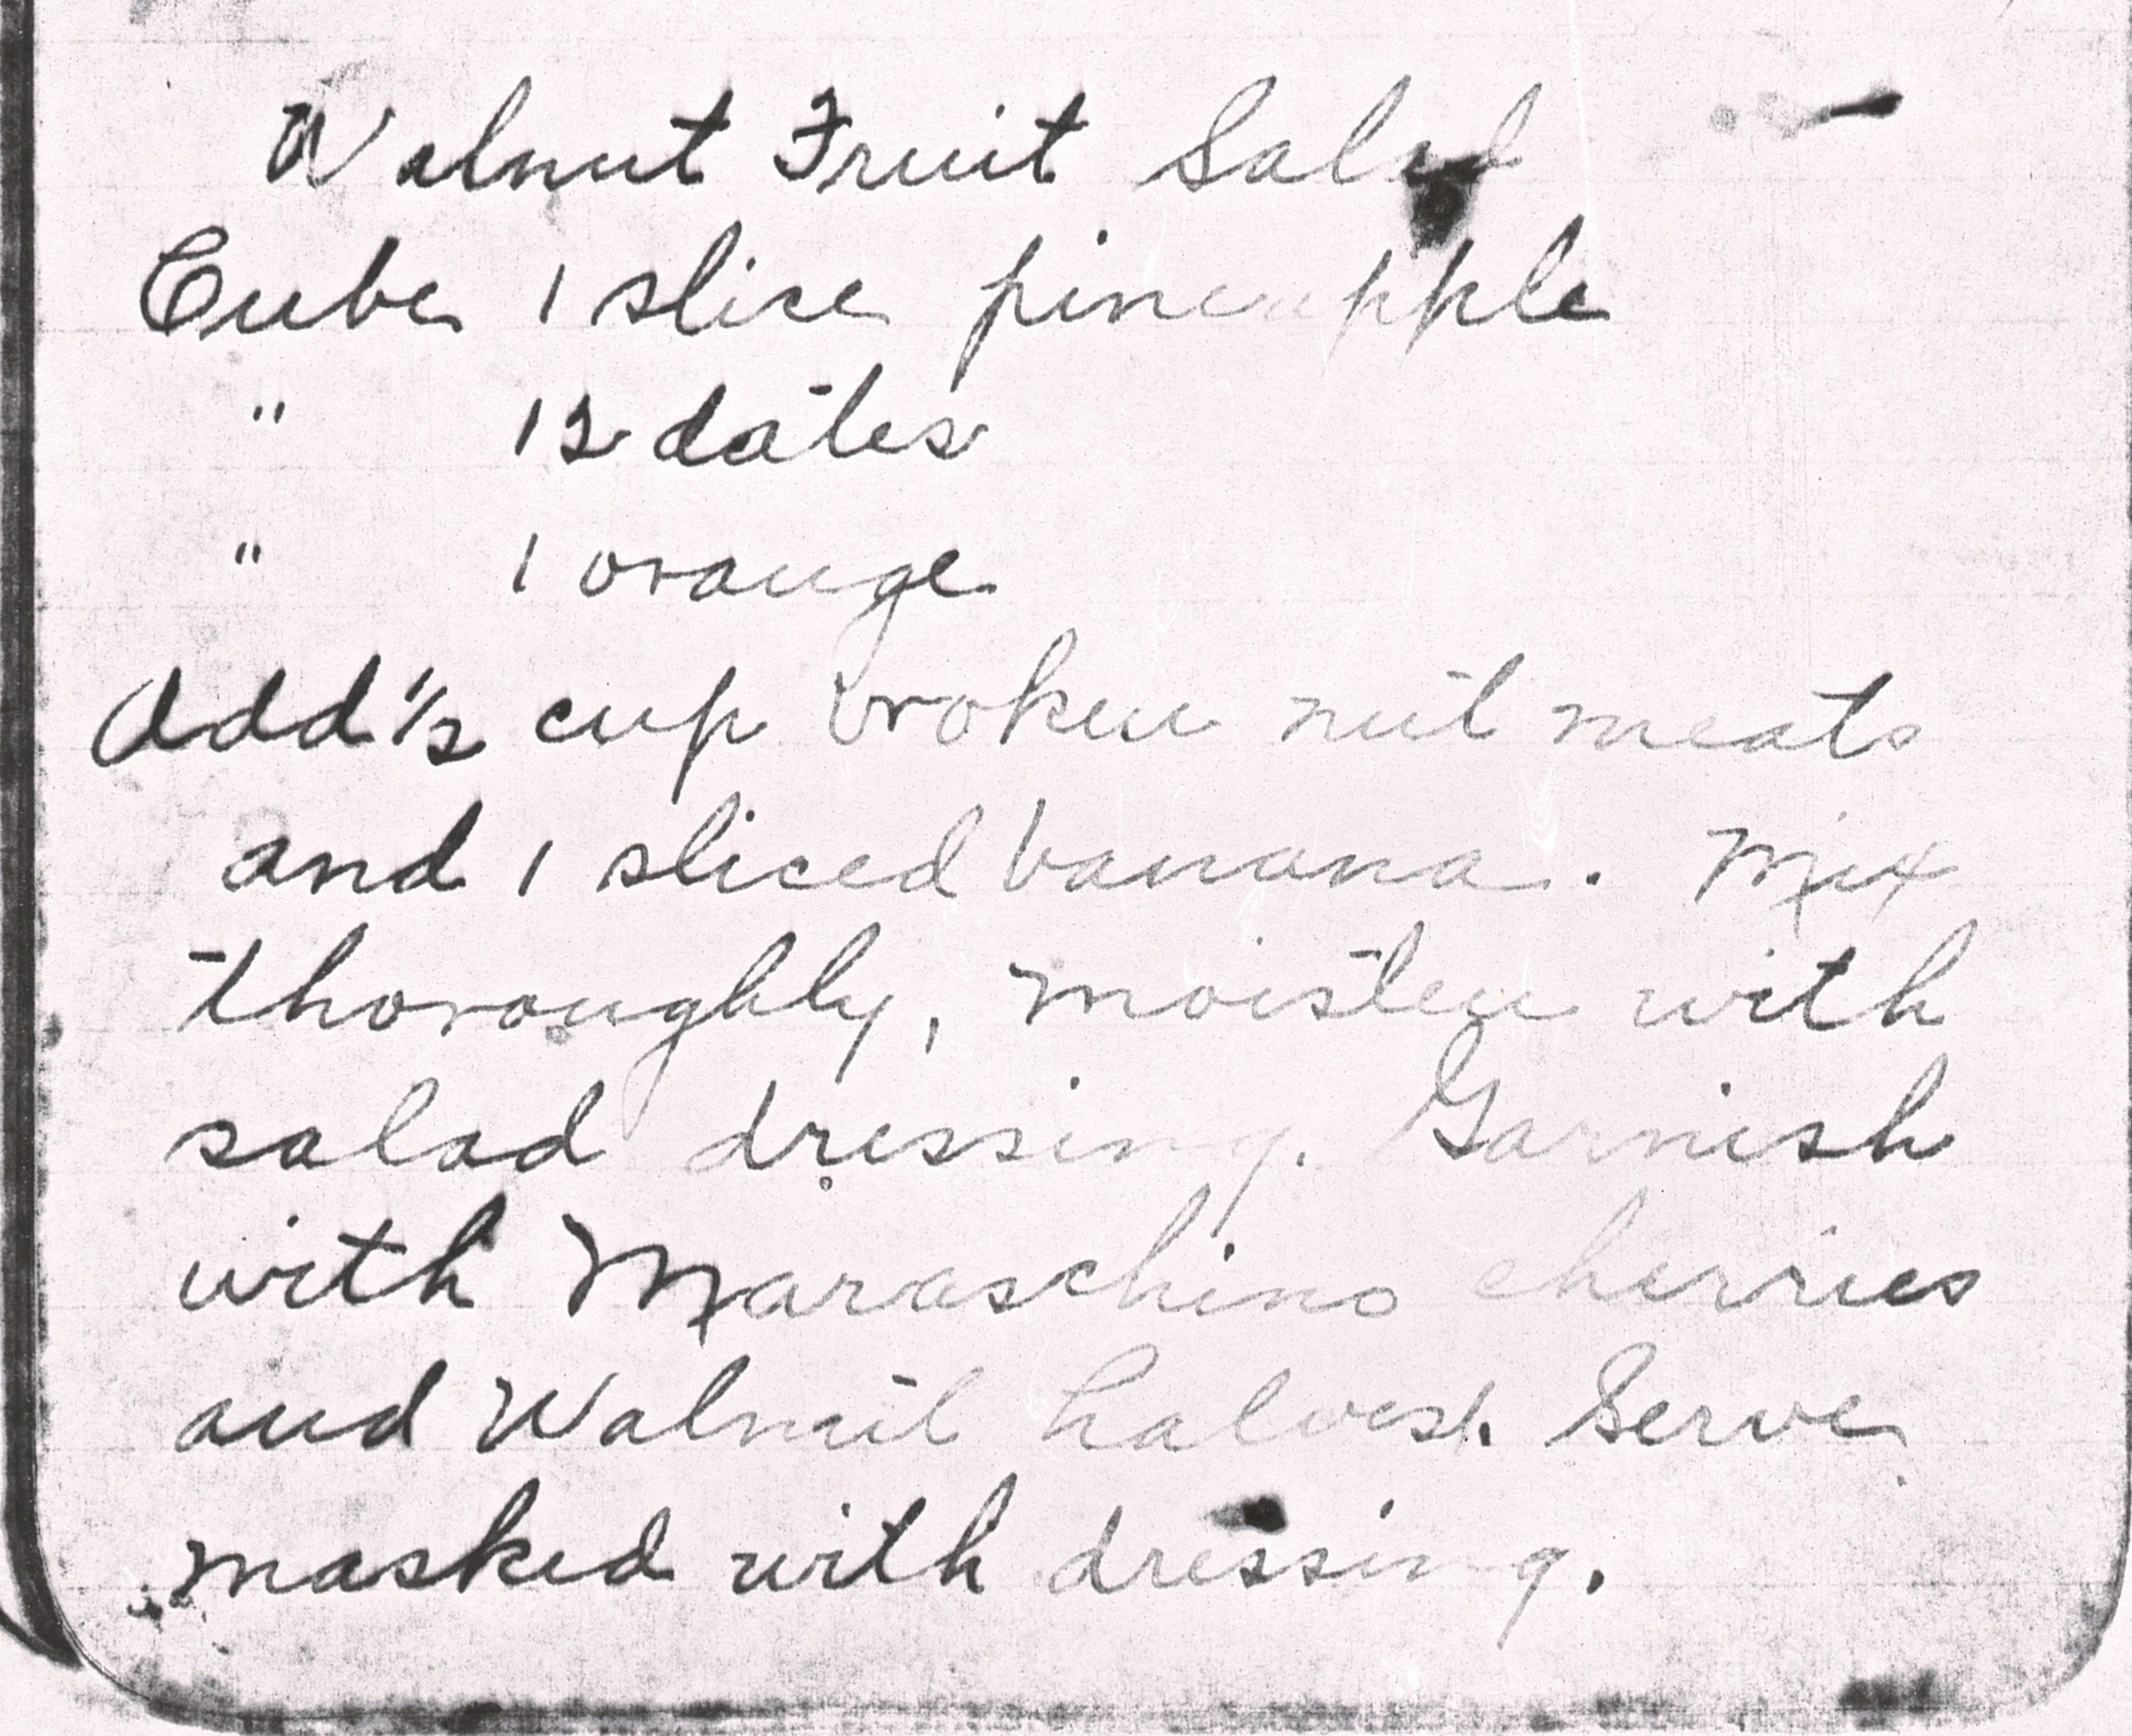 Walnut Fruit Salad
Cube 1 slice pineapple
" 12 dates
" 1 orange
Add 1/2 cup broken nut meats
and 1 sliced banana. Mix
thoroughly, moisten with
salad dressing. Garnish
with Maraschino cherries
and Walnut halves. Serve
masked with dressing.